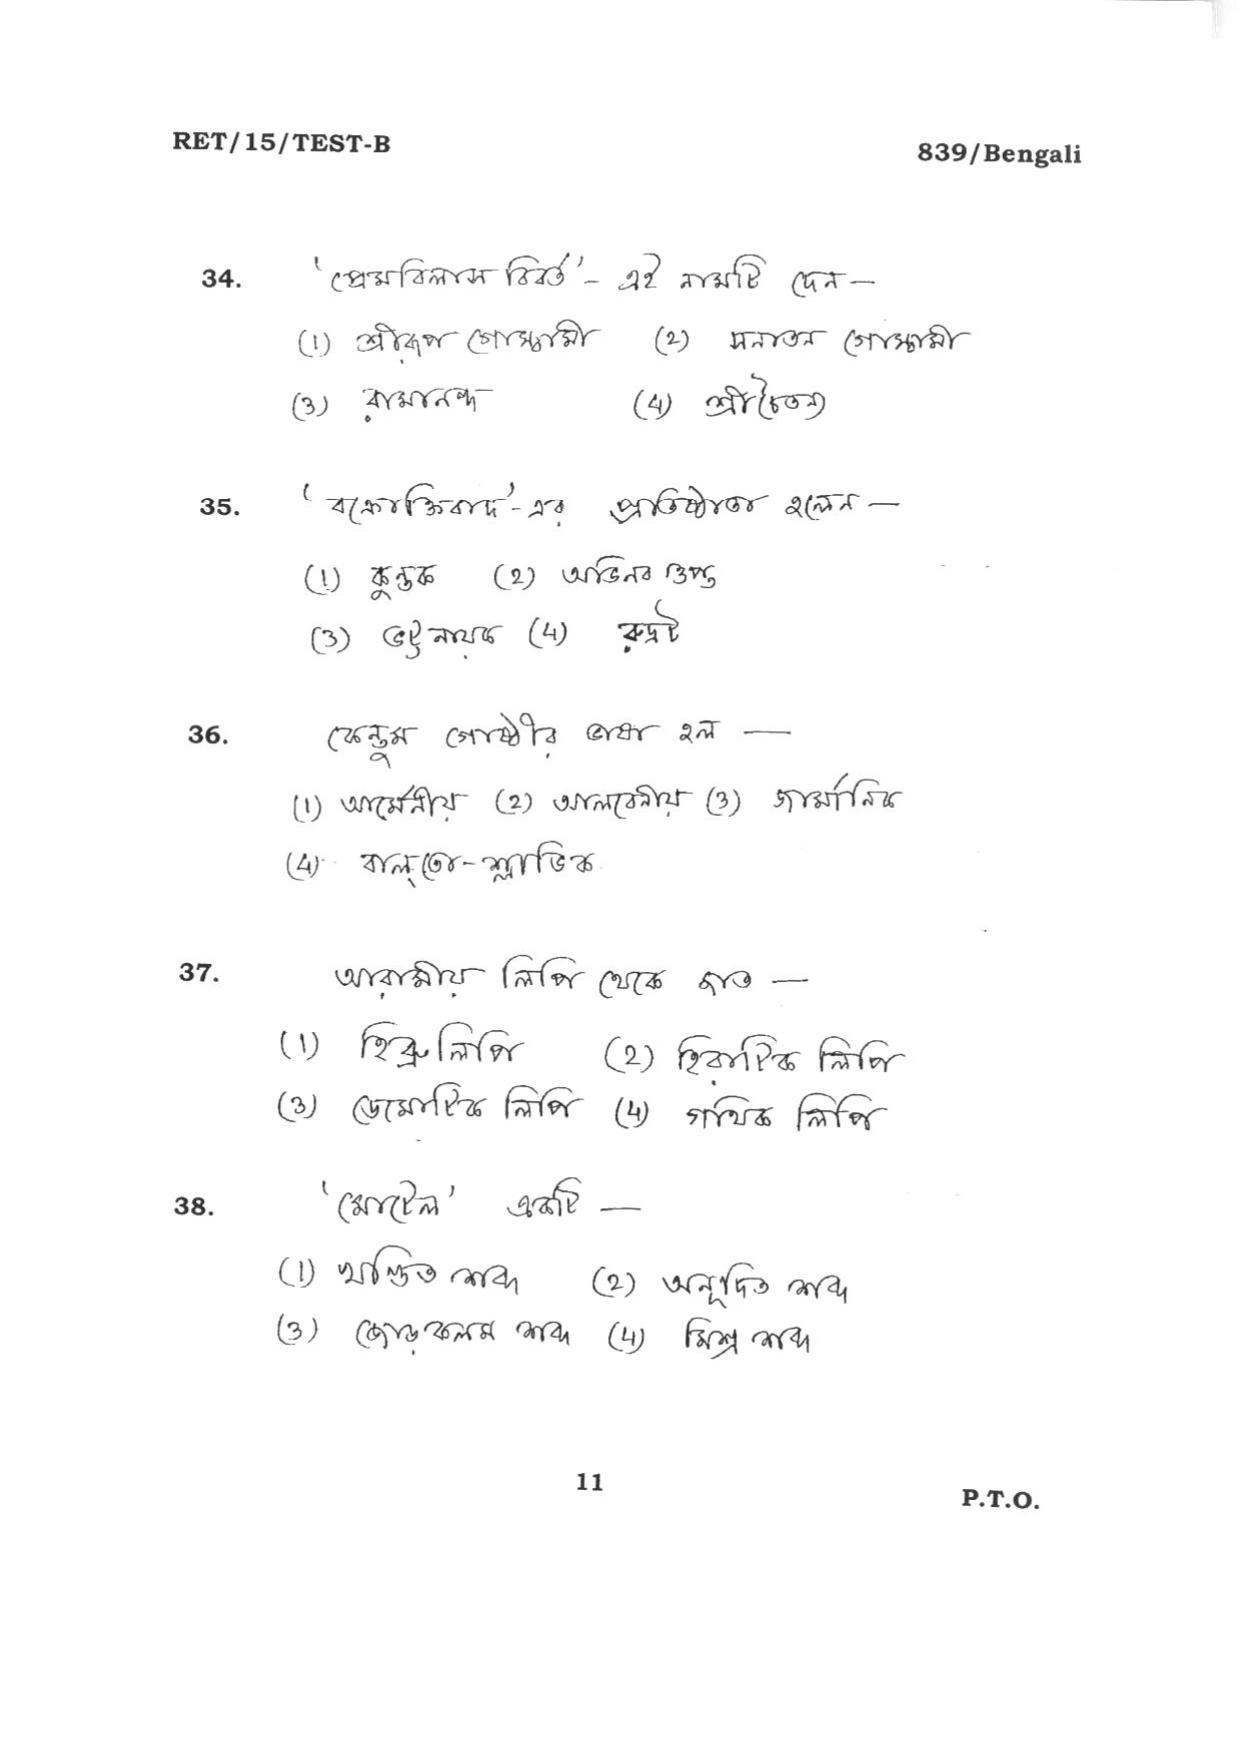 RET/15/TEST-B
839/Bengali
34. 'প্রেমবিলাস বিবর্ত'- এই নামটি দেন—
(1) শ্রীরূপ গোস্বামী (2) সনাতন গোস্বামী
(3) রামানন্দ (4) শ্রীচৈতন্য
35. 'বক্রোক্তিবাদ'-এর প্রতিষ্ঠাতা হলেন—
(1) কুন্তক (2) অভিনব গুপ্ত
(3) ভট্টনায়ক (4) রুদ্রট
36. কেন্তুম গোষ্ঠীর ভাষা হল —
(1) আর্মেনীয় (2) আলবেনীয় (3) জার্মানিক
(4) বাল্‌তো-শ্লাভিক
37. আরামীয় লিপি থেকে জাত —
(1) হিব্রু লিপি (2) হিরাটিক লিপি
(3) ডেমোটিক লিপি (4) গথিক লিপি
38. 'মোটেল' একটি —
(1) খণ্ডিত শব্দ (2) অনূদিত শব্দ
(3) জোড়কলম শব্দ (4) মিশ্র শব্দ
11
P.T.O.